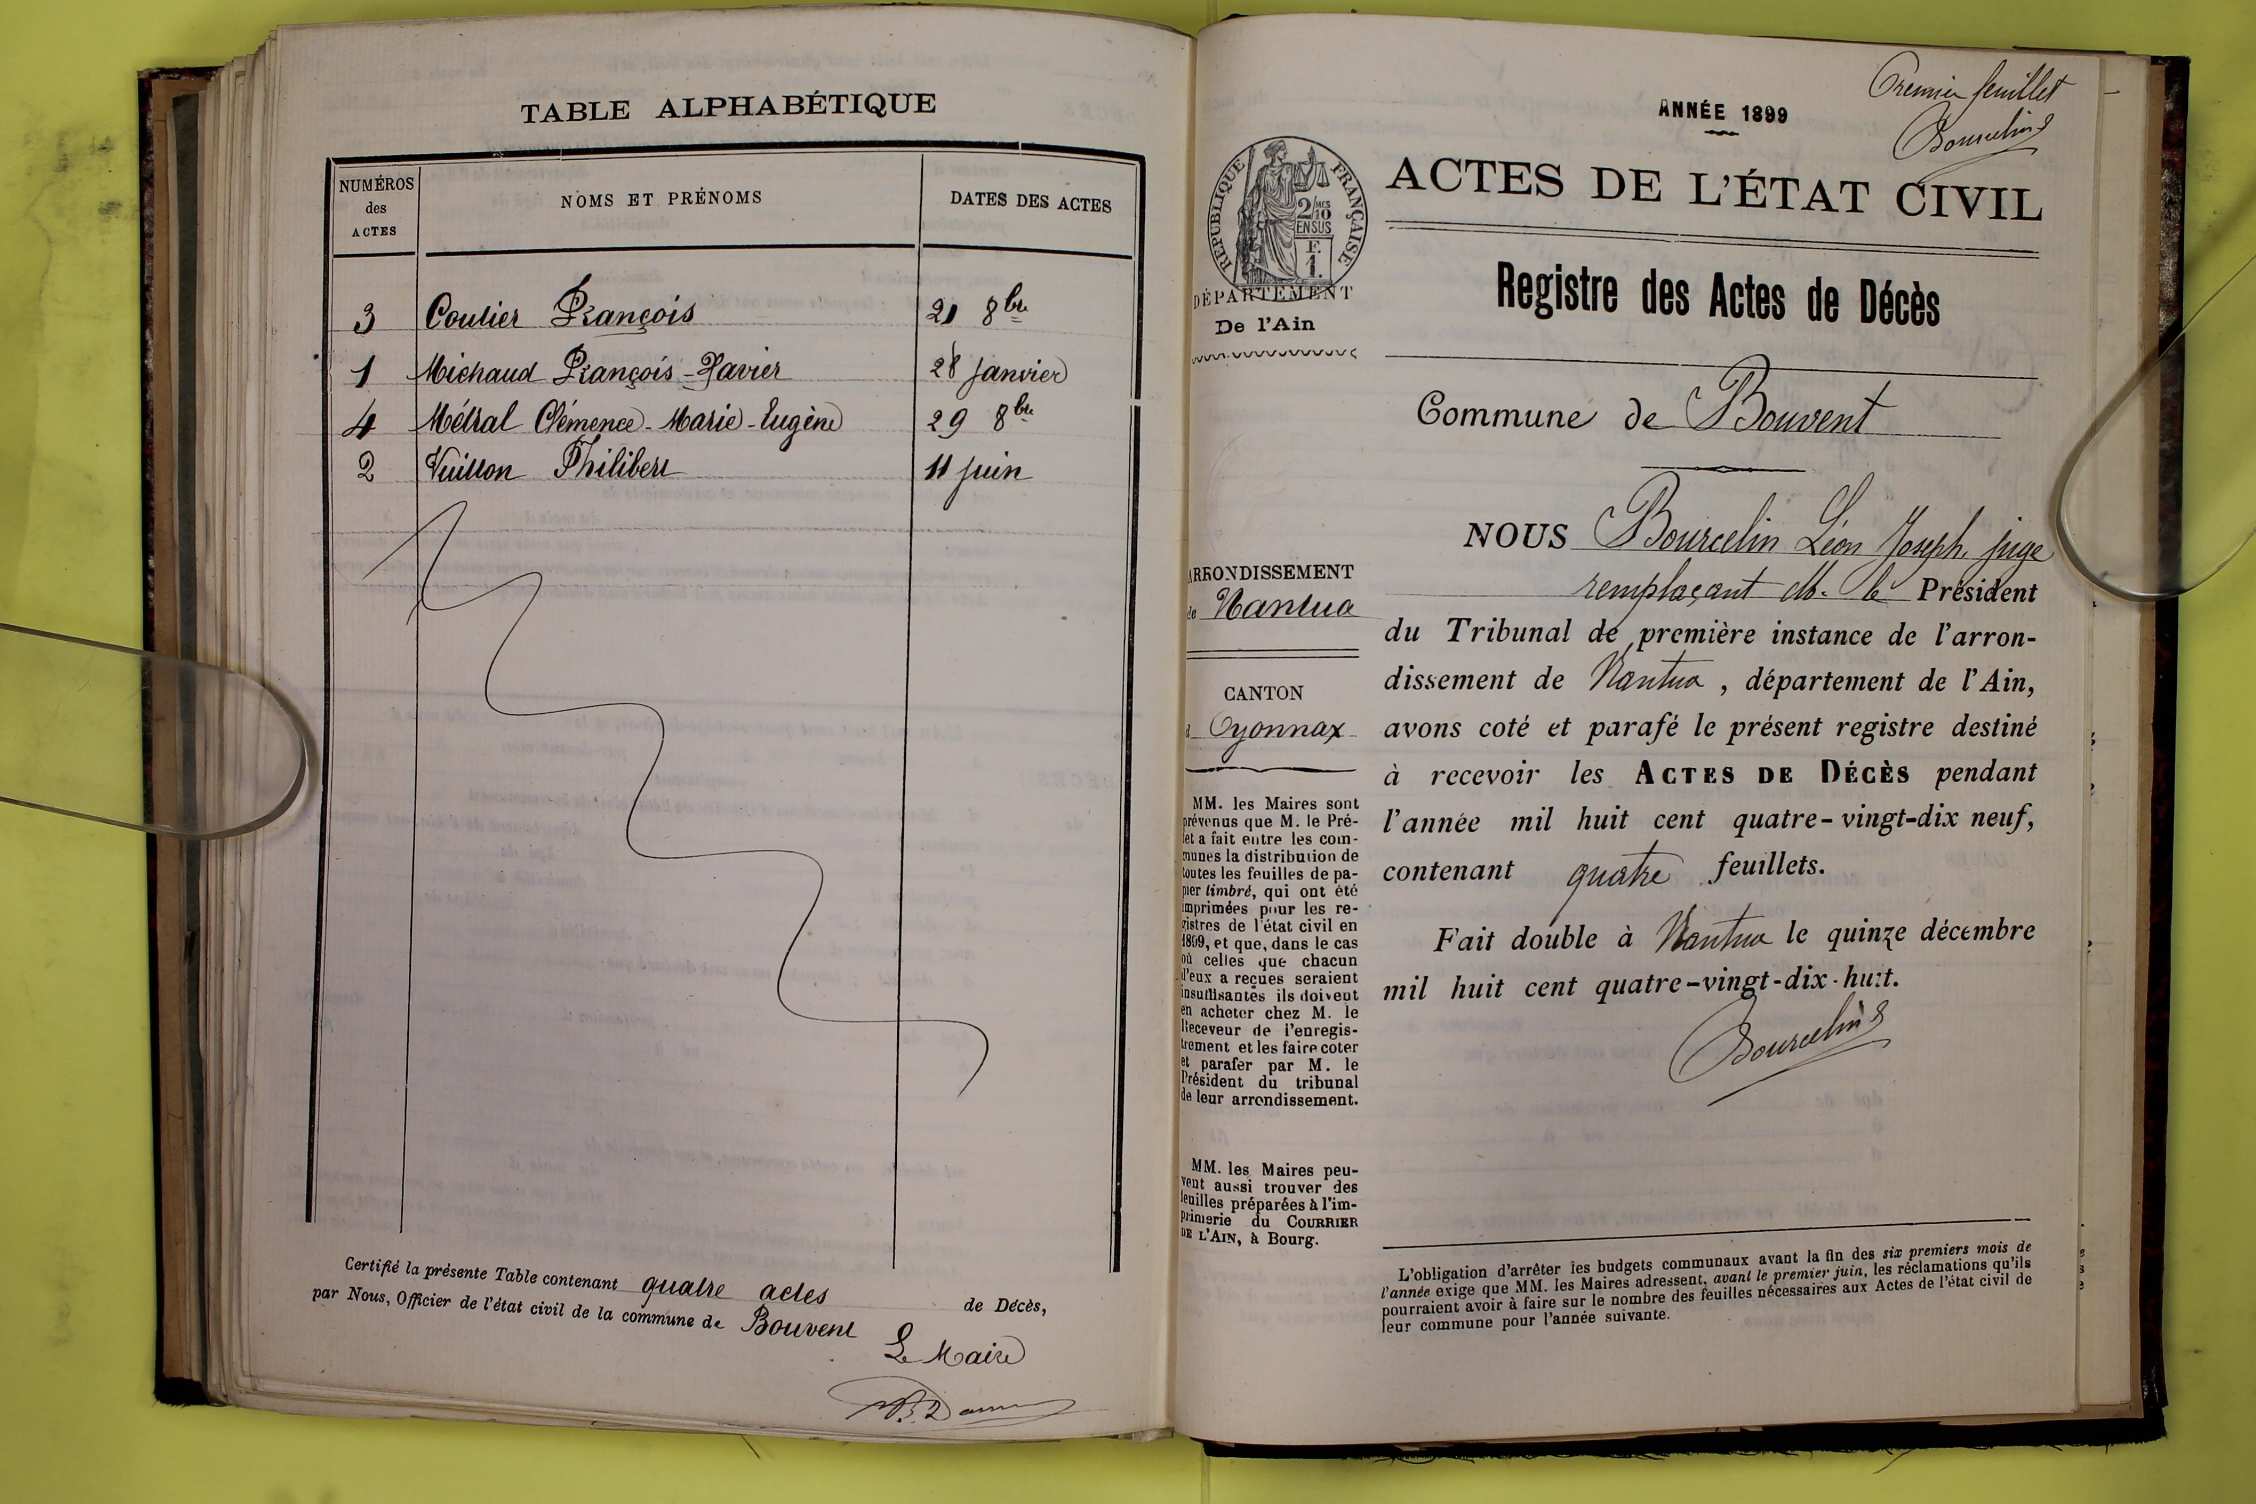 TABLE ALPHABÉTIQUE
NUMÉROS
des
ACTES
NOMS ET PRÉNOMS
DATES DES ACTES
3 Coutier François 21 8bre
1 Michaud François-Xavier 28 Janvier
4 Métral Clémence-Marie-Eugène 29 8bre
2 Vuitton Philibert 11 Juin
Certifié la présente Table contenant quatre actes de Décès,
par Nous, Officier de l'état civil de la commune de Bouvent
Le Maire
Premier feuillet
Bourcelin
ANNÉE 1899
RÉPUBLIQUE FRANÇAISE
2/10
EN SUS
F.
1.
ACTES DE L'ÉTAT CIVIL
DÉPARTEMENT
De l'Ain
Registre des Actes de Décès
Commune de Bouvent
ARRONDISSEMENT
de Nantua
CANTON
d Oyonnax
MM. les Maires sont
prévenus que M. le Pré-
fet a fait entre les com-
munes la distribution de
toutes les feuilles de pa-
pier timbré, qui ont été
imprimées pour les re-
gistres de l'état civil en
1899, et que, dans le cas
où celles que chacun
d'eux a reçues seraient
insuffisantes ils doivent
en acheter chez M. le
Receveur de l'enregis-
trement et les faire coter
et parafer par M. le
Président du tribunal
de leur arrondissement.
MM. les Maires peu-
vent aussi trouver des
feuilles préparées à l'im-
primerie du COURRIER
DE L'AIN, à Bourg.
NOUS Bourcelin Léon Joseph, juge
remplaçant M. le Président
du Tribunal de première instance de l'arron-
dissement de Nantua, département de l'Ain,
avons coté et parafé le présent registre destiné
à recevoir les ACTES DE DÉCÈS pendant
l'année mil huit cent quatre-vingt-dix neuf,
contenant quatre feuillets.
Fait double à Nantua le quinze décembre
mil huit cent quatre-vingt-dix-huit.
Bourcelin
L'obligation d'arrêter les budgets communaux avant la fin des six premiers mois de
l'année exige que MM. les Maires adressent, avant le premier juin, les réclamations qu'ils
pourraient avoir à faire sur le nombre des feuilles nécessaires aux Actes de l'état civil de
leur commune pour l'année suivante.